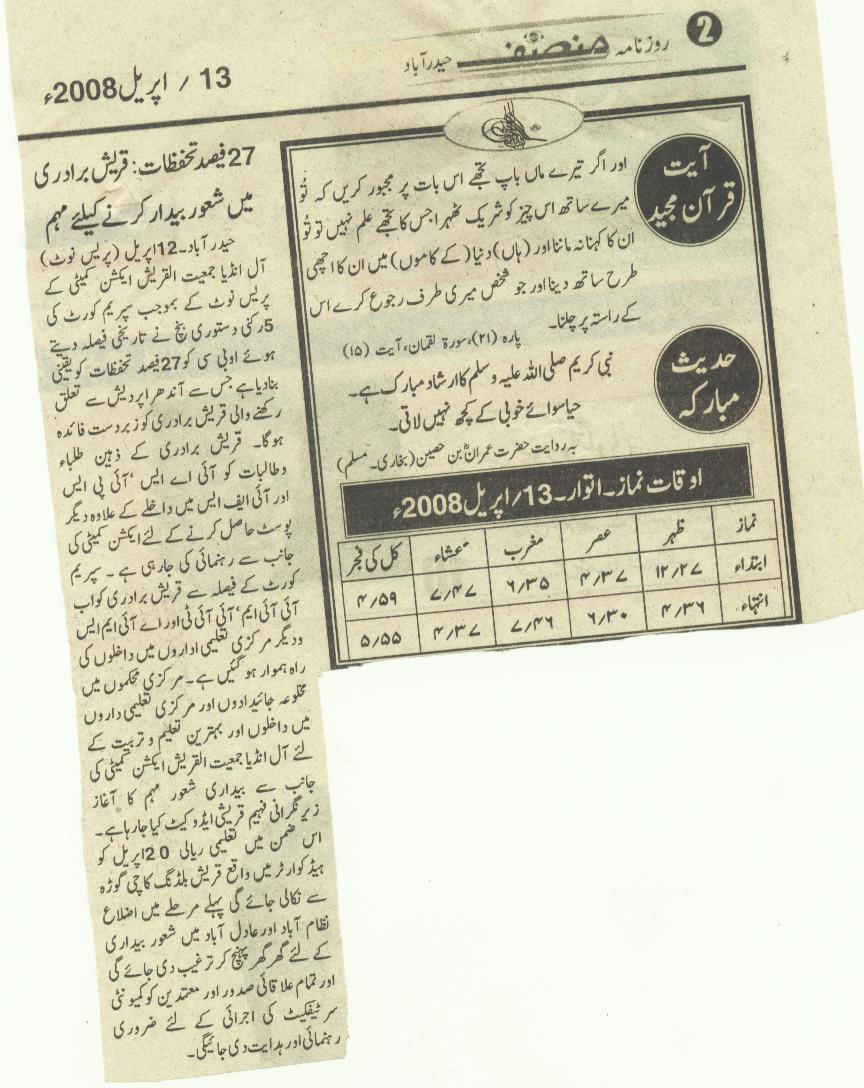 2
روزنامہ منصف حیدرآباد
13 / اپریل 2008ء
آیت
قرآن مجید
اور اگر تیرے ماں باپ تجھے اس بات پر مجبور کریں کہ تُو
میرے ساتھ اس چیز کو شریک ٹھہرا جس کا تجھے علم نہیں تو تُو
ان کا کہنا نہ ماننا اور (ہاں) دنیا (کے کاموں) میں ان کا اچھی
طرح ساتھ دینا اور جو شخص میری طرف رجوع کرے اس
کے راستہ پر چلنا۔
پارہ (۲۱)، سورۃ لقمان، آیت (۱۵)
حدیث
مبارکہ
نبی کریم صلی اللہ علیہ وسلم کا ارشاد مبارک ہے۔
حیا سوائے خوبی کے کچھ نہیں لاتی۔
بہ روایت حضرت عمرانؓ بن حصین (بخاری۔ مسلم)
اوقات نماز۔ اتوار۔ 13/اپریل 2008ء
نماز ظہر عصر مغرب عشاء کل کی فجر
ابتداء ۱۲/۲۷ ۴/۳۷ ۶/۳۵ ۷/۴۷ ۴/۵۹
انتہاء ۴/۳۶ ۶/۳۰ ۷/۴۶ ۴/۳۷ ۵/۵۵
27 فیصد تحفظات: قریش برادری
میں شعور بیدار کرنے کیلئے مہم
حیدرآباد۔12اپریل (پریس نوٹ)
آل انڈیا جمعیت القریش ایکشن کمیٹی کے
پریس نوٹ کے بموجب سپریم کورٹ کی
5رکنی دستوری بنچ نے تاریخی فیصلہ دیتے
ہوئے او بی سی کو 27فیصد تحفظات کو یقینی
بنادیا ہے جس سے آندھراپردیش سے تعلق
رکھنے والی قریش برادری کو زبردست فائدہ
ہوگا۔ قریش برادری کے ذہین طلباء
وطالبات کو آئی اے ایس ‘آئی پی ایس
اور آئی ایف ایس میں داخلے کے علاوہ دیگر
پوسٹ حاصل کرنے کے لئے ایکشن کمیٹی کی
جانب سے رہنمائی کی جارہی ہے۔ سپریم
کورٹ کے فیصلہ سے قریش برادری کو اب
آئی آئی ایم‘ آئی آئی ٹی اور اے آئی ایم ایس
ودیگر مرکزی تعلیمی اداروں میں داخلوں کی
راہ ہموار ہوگئیں ہے۔ مرکزی محکموں میں
مخلوعہ جائیدادوں اور مرکزی تعلیمی داروں
میں داخلوں اور بہترین تعلیم و تربیت کے
لئے آل انڈیا جمعیت القریش ایکشن کمیٹی کی
جانب سے بیداری شعور مہم کا آغاز
زیر نگرانی فہیم قریشی ایڈوکیٹ کیا جارہا ہے۔
اس ضمن میں تعلیمی ریالی 20اپریل کو
ہیڈ کوارٹر میں واقع قریش بلڈنگ کاچی گوڑہ
سے نکالی جائے گی پہلے مرحلے میں اضلاع
نظام آباد اور عادل آباد میں شعور بیداری
کے لئے گھر گھر پہنچ کر ترغیب دی جائے گی
اور تمام علاقائی صدور اور معتمدین کو کمیونٹی
سرٹیفکیٹ کی اجرائی کے لئے ضروری
رہنمائی اور ہدایت دی جائیگی۔